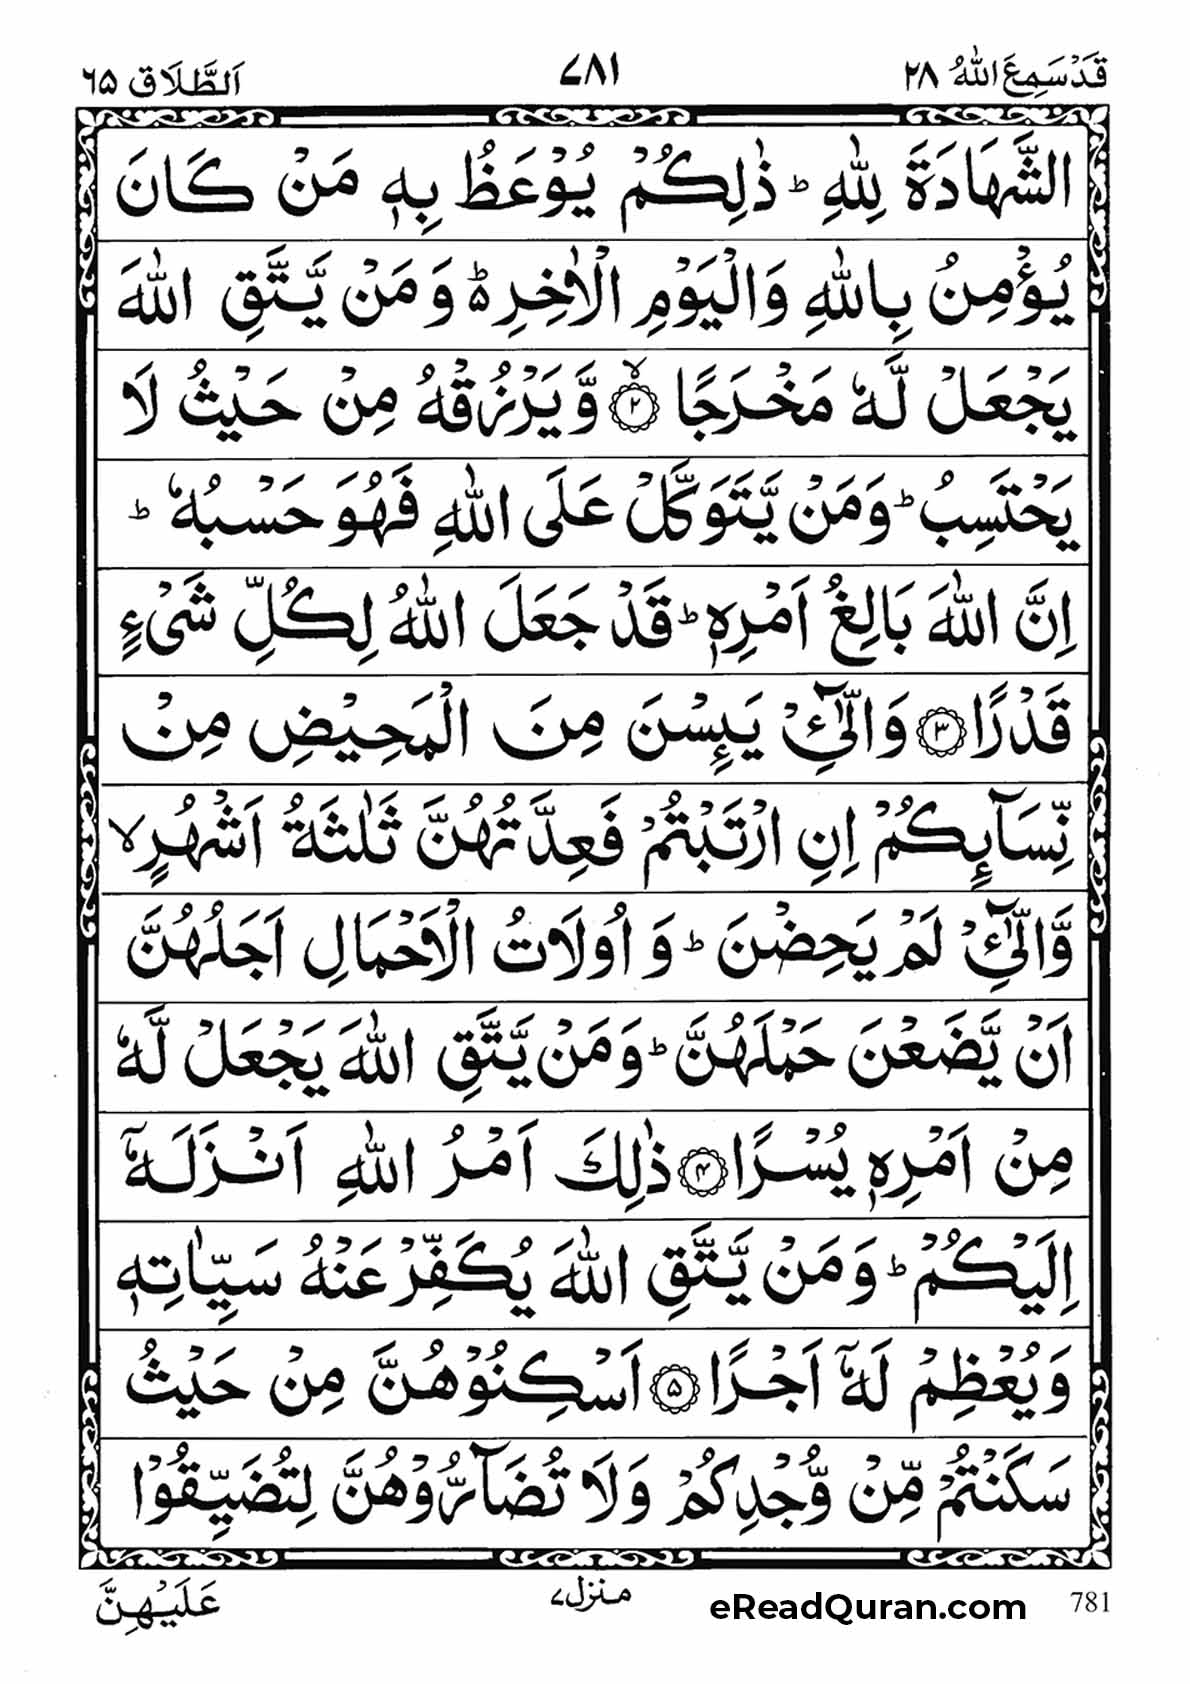 قَدْ سَمِعَ اللّٰهُ ٢٨ ٧٨١ اَلطَّلَاق ٦٥
الشَّهَادَةَ لِلّٰهِ ؕ ذٰلِكُمْ يُوْعَظُ بِهٖ مَنْ كَانَ
يُؤْمِنُ بِاللّٰهِ وَالْيَوْمِ الْاٰخِرِ ؕ۬ وَمَنْ يَّتَّقِ اللّٰهَ
يَجْعَلْ لَّهٗ مَخْرَجًا ۙ﴿٢﴾ وَّيَرْزُقْهُ مِنْ حَيْثُ لَا
يَحْتَسِبُ ؕ وَمَنْ يَّتَوَكَّلْ عَلَى اللّٰهِ فَهُوَ حَسْبُهٗ ؕ
اِنَّ اللّٰهَ بَالِغُ اَمْرِهٖ ؕ قَدْ جَعَلَ اللّٰهُ لِكُلِّ شَىْءٍ
قَدْرًا ﴿٣﴾ وَالّٰٓئِْ يَئِسْنَ مِنَ الْمَحِيْضِ مِنْ
نِّسَآئِكُمْ اِنِ ارْتَبْتُمْ فَعِدَّتُهُنَّ ثَلٰثَةُ اَشْهُرٍ ۙ
وَّالّٰٓئِْ لَمْ يَحِضْنَ ؕ وَ اُولَاتُ الْاَحْمَالِ اَجَلُهُنَّ
اَنْ يَّضَعْنَ حَمْلَهُنَّ ؕ وَمَنْ يَّتَّقِ اللّٰهَ يَجْعَلْ لَّهٗ
مِنْ اَمْرِهٖ يُسْرًا ﴿٤﴾ ذٰلِكَ اَمْرُ اللّٰهِ اَنْزَلَهٗٓ
اِلَيْكُمْ ؕ وَمَنْ يَّتَّقِ اللّٰهَ يُكَفِّرْ عَنْهُ سَيِّاٰتِهٖ
وَيُعْظِمْ لَهٗٓ اَجْرًا ﴿٥﴾ اَسْكِنُوْهُنَّ مِنْ حَيْثُ
سَكَنْتُمْ مِّنْ وُّجْدِكُمْ وَلَا تُضَآرُّوْهُنَّ لِتُضَيِّقُوْا
عَلَيْهِنَّ
منزل ٧
eReadQuran.com 781